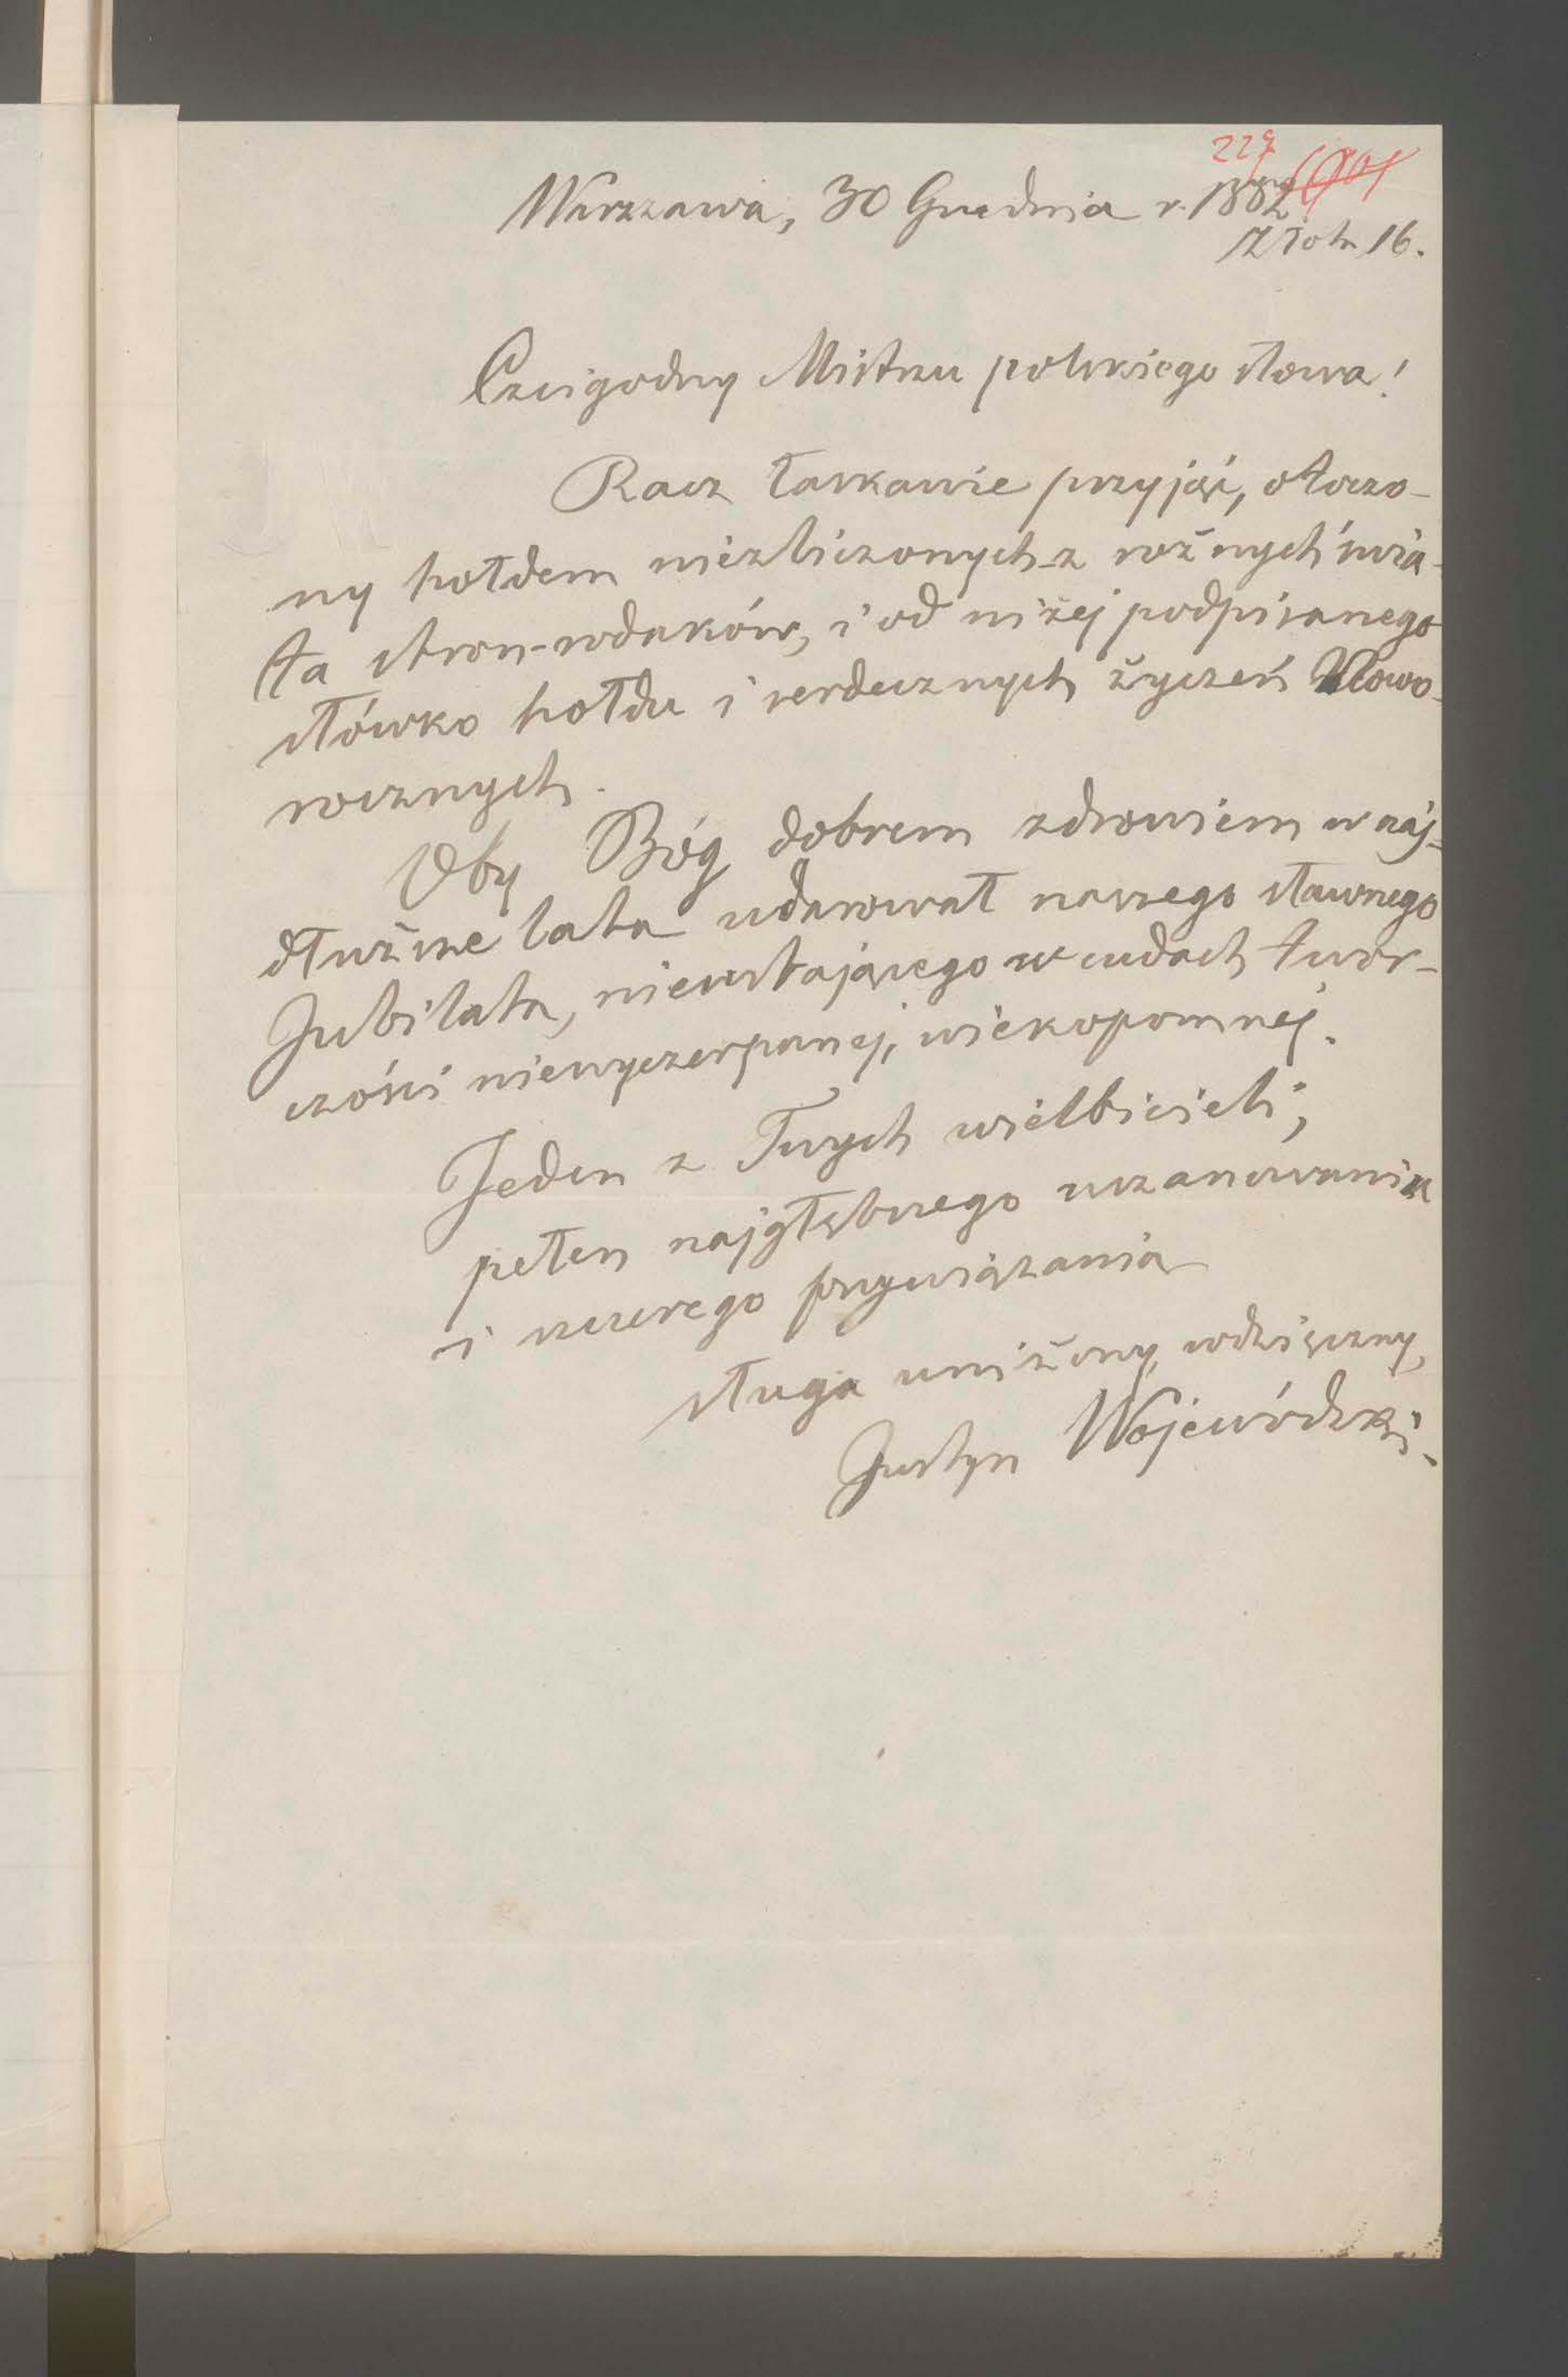 229
Warszawa, 30 Grudnia r. 1882
Złota 16.
Czcigodny Mistrzu polskiego słowa!
Racz łaskawie przyjąć, otoczo-
ny hołdem niezliczonych z rożnych świa-
ta stron-rodaków, i od niżej podpisanego
słówko hołdu i serdecznych życzeń Nowo-
rocznych.
Oby Bóg dobrem zdrowiem w naj-
dłuższe lata udarował naszego sławnego
Jubilata, nieustającego w cudach twór-
czości niewyczerpanej, wiekopomnej.
Jeden z Twych wielbicieli,
pełen najgłębszego uszanowania
i szczerego przywiązania
sługa uniżony, wdzięczny,
Justyn Wojewódzki.